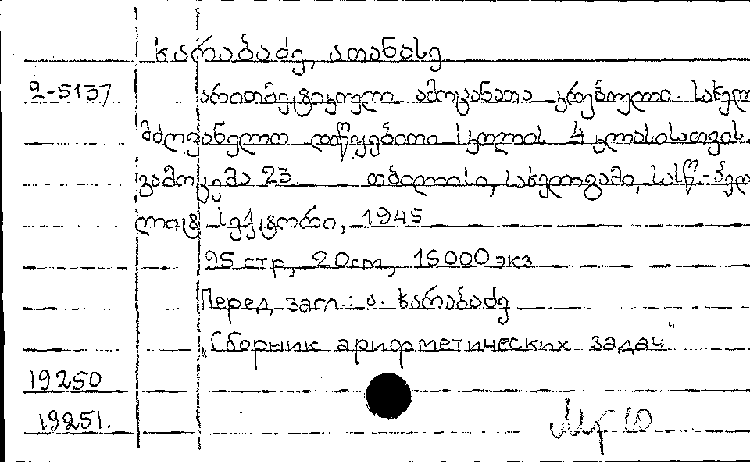 ხარაბაძე, ათანასე
2-5137 არითმეტიკული ამოცანათა კრებული. სახელ
მძღვანელო დაწყებითი სკოლის 4 კლასისათვის.
გამოცემა 23 თბილისი, სახელგამი, სასწ.-პედ
ლიტ სექტორი, 1945
95 стр, 20cm, 15000 экз
Перед загл.: ა. ხარაბაძე
"Сборник арифметических задач"
19250
19251.